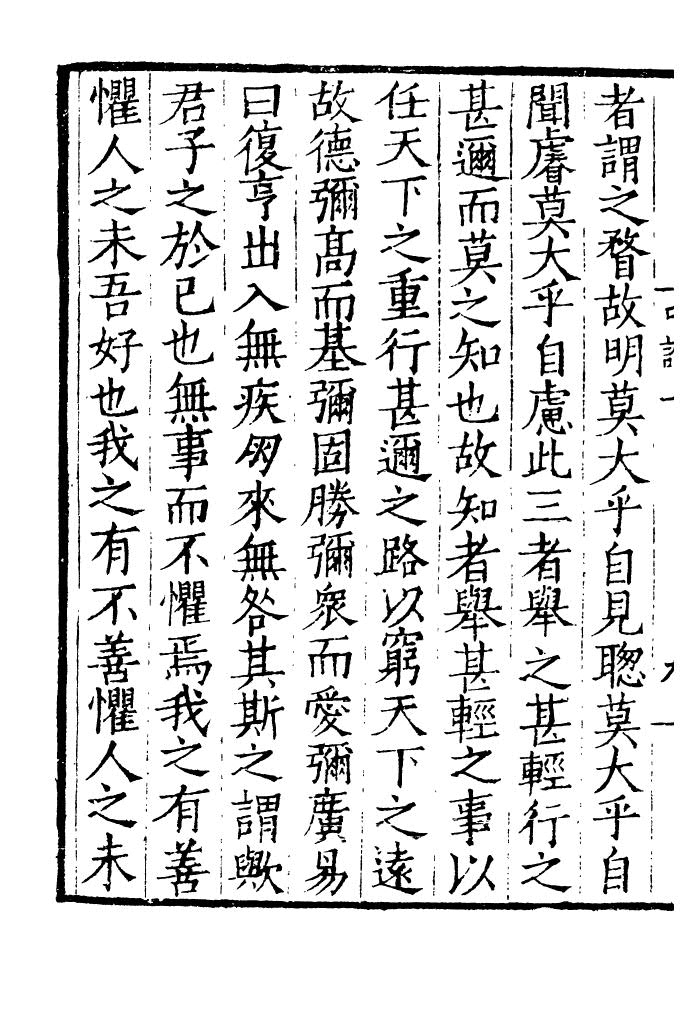 者謂之瞀故明莫大乎自見聦莫大乎自
聞睿莫大乎自慮此三者舉之甚輕行之
甚邇而莫之知也故知者舉甚輕之事以
任天下之重行甚邇之路以窮天下之遠
故德彌髙而基彌固勝彌衆而愛彌廣易
曰復亨出入無疾朋來無咎其斯之謂歟
君子之於已也無事而不懼焉我之有善
懼人之未吾好也我之有不善懼人之未